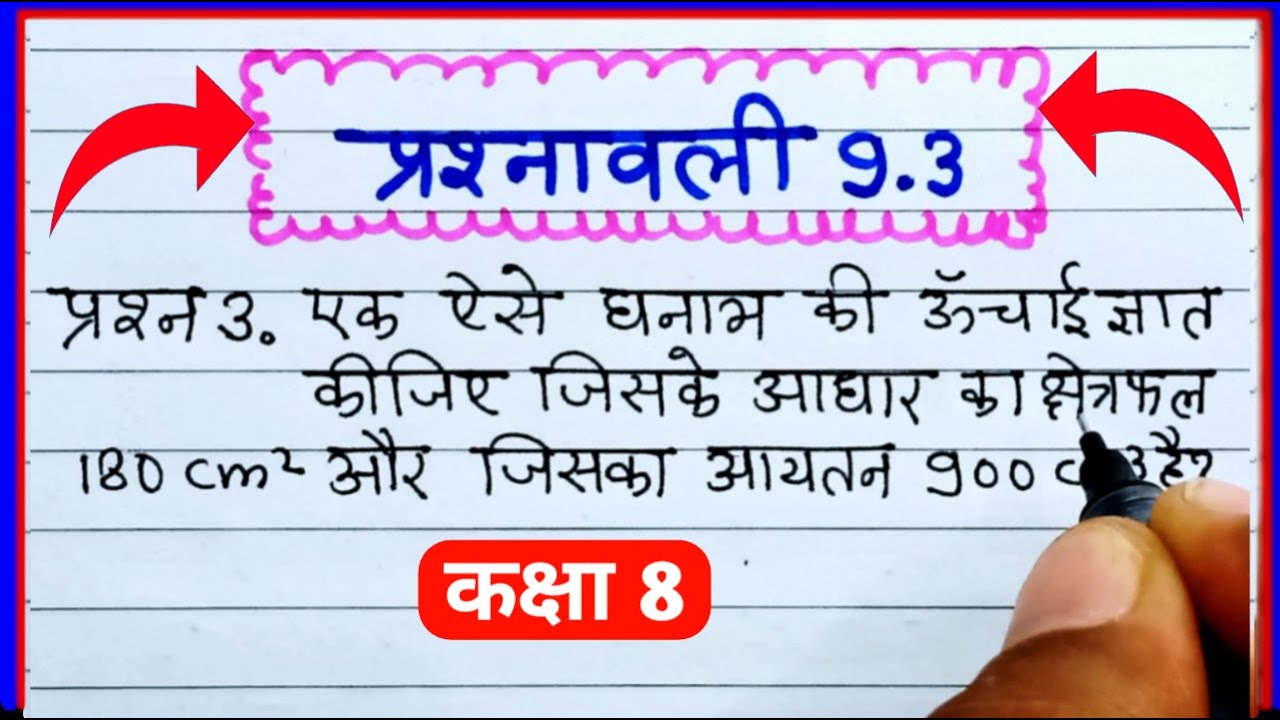 प्रश्नावली 9.3
प्रश्न 3. एक ऐसे घनाभ की ऊँचाई ज्ञात
कीजिए जिसके आधार का क्षेत्रफल
180 cm² और जिसका आयतन 900 है?
कक्षा 8